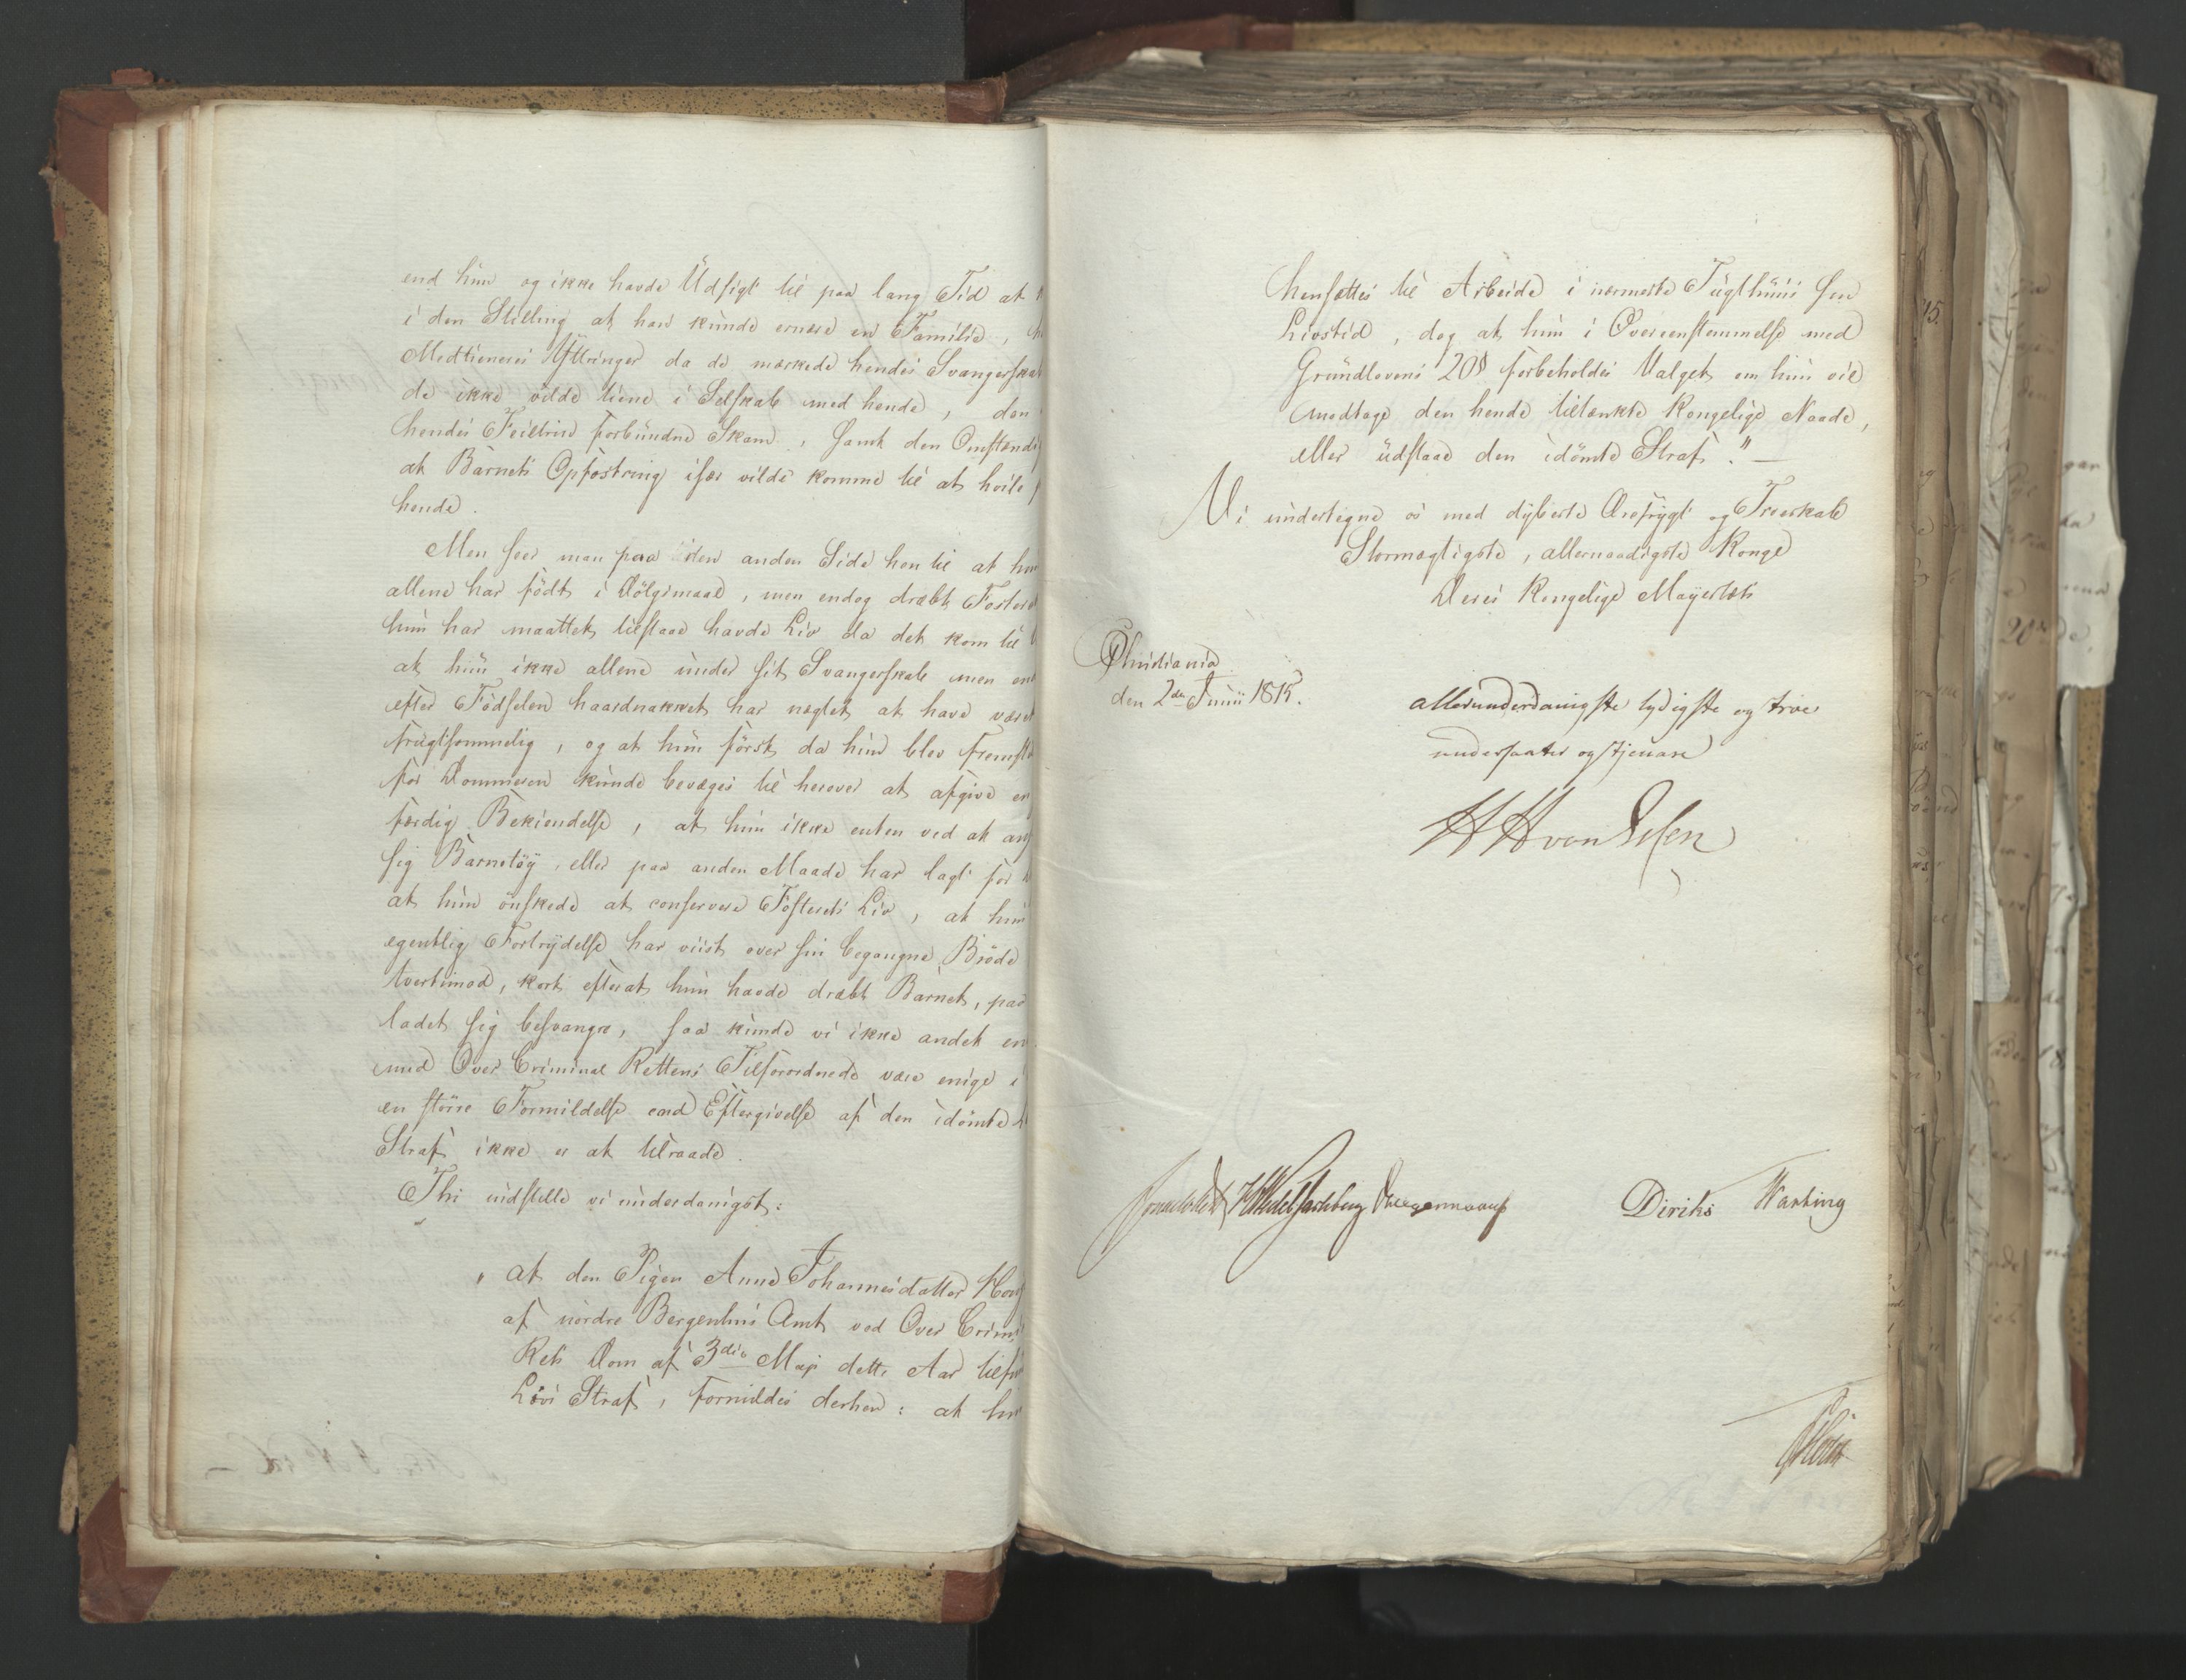 end hun og ikke havde Udsigt til paa lang Tid at
i den Stilling at han kunde ernære en Familie,
Medtieneres Yttringer da de mærkede hendes Svangerskab
de ikke vilde tiene i Selskab med hende, den
hendes Feiltrin forbundne Skam, samt den Omstændig
at Barnets Opfostring især vilde komme til at hvile
hende.
Men seer man paa den anden Side hen til at hun
allene har födt i Dölgsmaal, men endog dræbt Fosteret
hun har maattet tilstaae havde Liv da det kom til
at hun ikke allene under sit Svangerskab men end
efter Födselen haardnakket har nægtet at have været
frugtsommelig, og at hun först da hun blev fremstil
for Dommeren kunde bevæges til herover at afgive en
færdig Bekiendelse, at hun ikke enten ved at an
sig Barnetöy eller paa anden Maade har lagt for
at hun önskede at conservere Fosterets Liv, at hun
egentlig Fortrydelse har viist over sin begangne Bröde
tvertimod, kort efterat hun havde dræbt Barnet, paa
ladet sig besvangre, saa kunde vi ikke andet en
med Over Criminal Rettens Tilforordnede være enige i
en större Formildelse end Eftergivelse af den idömte
Straf ikke er at tilraade.
Thi indstille vi underdanigst:
" at den Pigen Anne Johannesdatter Hov
af nordre Bergenhus Amt ved Over Crimi
Rets Dom af 3die Maji dette Aar tilfun
Livs Straf, formildes derhen: at hun
hensættes til Arbeide i nærmeste Tugthuus sin
Livstid, dog at hun i Overeenstemmelse med
Grundlovens 20§ forbeholdes Valget, om hun vil
modtage den hende tiltænkte Kongelige Naade,
eller udstaae den idömte Straf." —
Vi undertegne os med dybeste Ærefrygt og Troeskab
Stormægtigste, allernaadigste Konge
Deres Kongelige Mayestæts
Christiania
den 2den Junii 1815.
allerunderdanigste lydigste og troe
undersaater og tjenare
H H von Essen
Sommerhielm HWedelJarlsberg Kriegernavn
Diriks Hartung
Holm